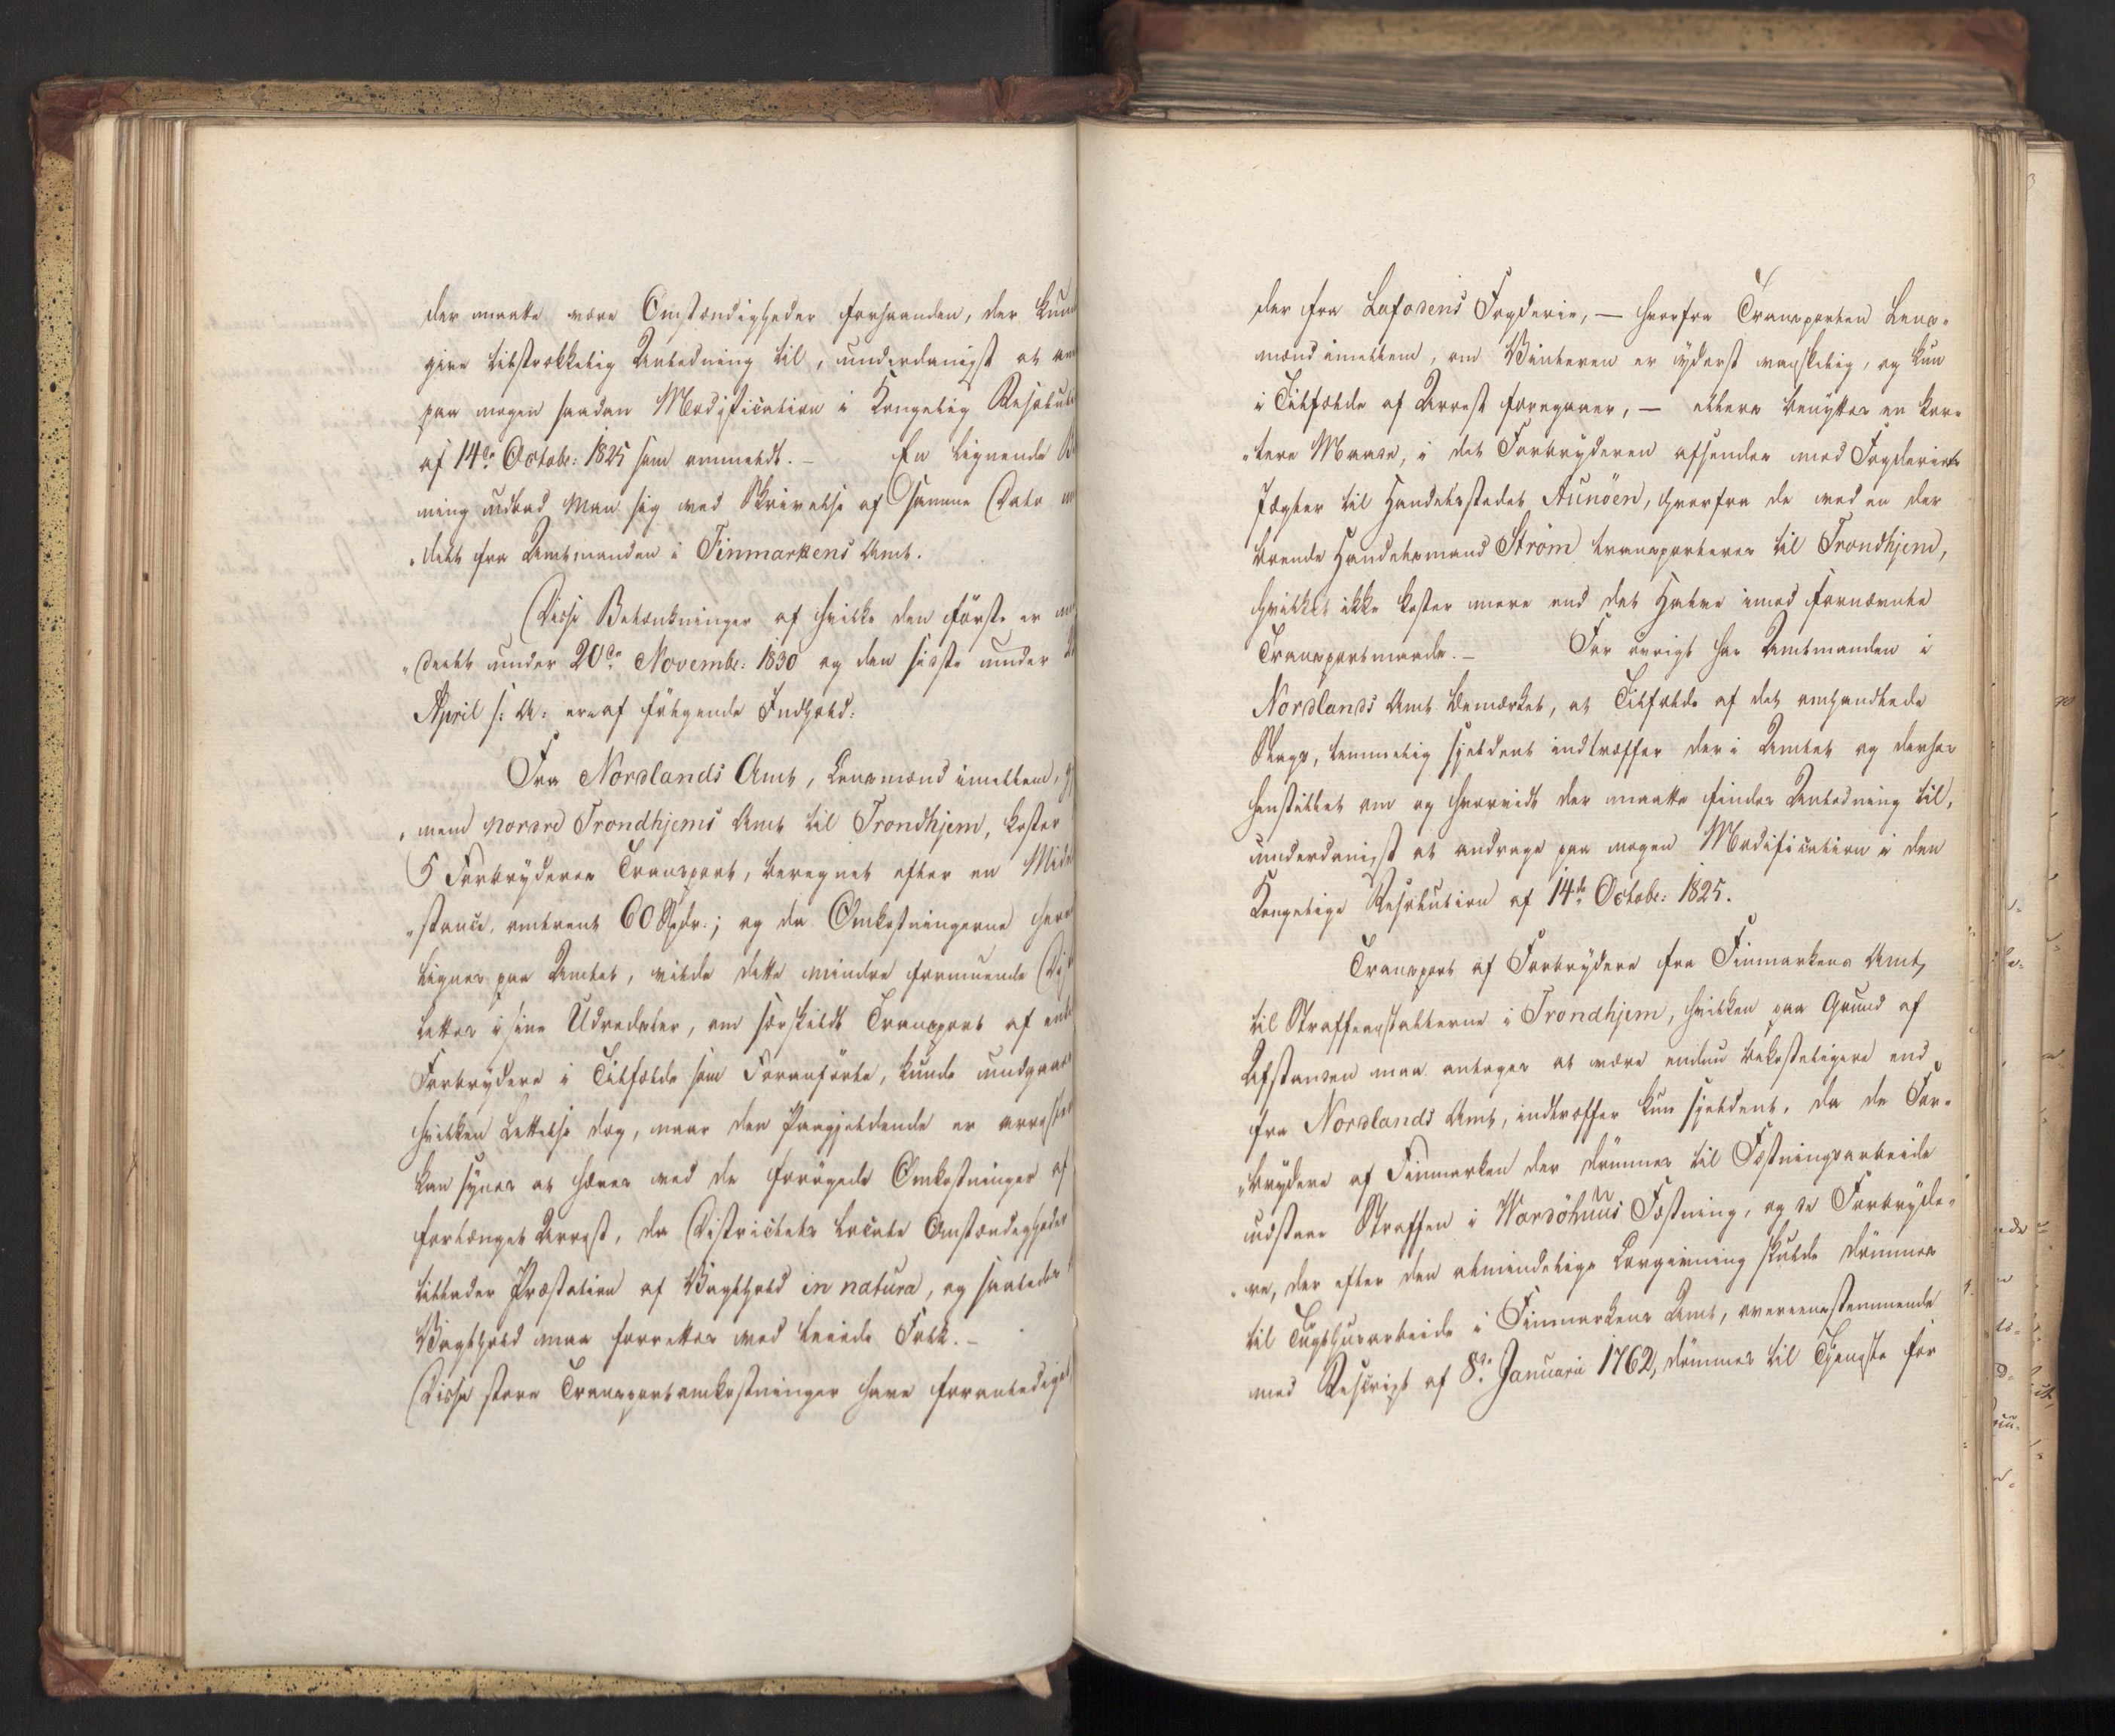 der maatte være Omstændigheder forhaanden, der kun
give tilstrækkelig Anledning til, underdanigst at an
paa nogen saadan Modification i Kongelig Resoluti
af 14de Octobr: 1825 som anmeldt. — En lignende B
ning udbad man sig ved Skrivelse af samme Dato
"delt fra Amtmanden i Finmarkens Amt.
Disse Betænkninger af hvilke den förste er
"deelt under 20de Novembr: 1830 og den sidste under
April s: A: ere af fölgende Indhold:
Fra Nordlands Amt, Lensmænd imellem,
"nem nordre Trondhjems Amt til Trondhjem, koster
5 Forbryderes Transport, beregnet efter en Mid
"stance, omtrent 60 Spdr.; og da Omkostningerne her
lignes paa Amtet, vilde dette mindre formuende Di
lettes i sine Udredsler, om særskildt Transport af
Forbrydere i Tilfælde som Foranförte, kunde undgaaes
hvilken Lettelse dog, naar den Paagjeldende er arreste
kan synes at hæves ved de forögede Omkostninger af
forlænget Arrest, da Districtets locale Omstændigheder
tillader Præstation af Vagthold in natura, og saaledes
Vagthold maa forrettes ved leiede Folk. —
Disse store Transportomkostninger have foranlediget
der fra Lofodens Fogderie, — hvorfra Transporten Lens-
mænd imellem, om Vinteren er yderst vanskelig, og kun
i Tilfælde af Arrest foregaaer, — ellers benyttes en kor-
"tere Maade, i det Forbryderen afsendes med Fogderiets
Jægter til Handelsstedet Aunöen, hvorfra de ved en der
boende Handelsmand Ström transporteres til Trondhjem,
hvilket ikke koster mere end det Halve imod fornævnte
Transportmaade. — For övrigt har Amtmanden i
Nordlands Amt bemærket, at Tilfælde af det omhandlede
Slags, temmelig sjeldent indtræffer der i Amtet og derhos
henstillet om og hvorvidt der maatte findes Anledning til,
underdanigst at andrage paa nogen Modification i den
Kongelige Resolution af 14de Octobr: 1825.
Transport af Forbrydere fra Finmarkens Amt,
til Straffeanstalterne i Trondhjem, hvilken paa Grund af
Afstanden maa antages at være endnu bekosteligere end
fra Nordlands Amt, indtræffer kun sjeldent, da de For-
"brydere af Finmarken der dömmes til Fæstningsarbeide
udstaae Straffen i Wardöhuus Fæstning, og de Forbryde-
"re, der efter den almindelige Lovgivning skulde dömmes
til Tugthusarbeide i Finmarkens Amt, overeensstemmende
med Rescript af 8de Januarii 1762, dömmes til Tjeneste for